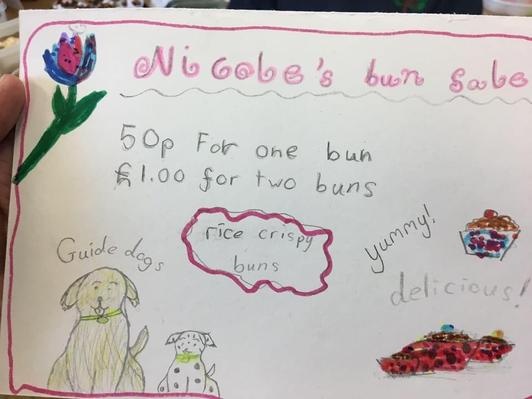 Nicole's bun Sale
50p For one bun
£1.00 for two buns
rice crispy
buns
yummy!
Guide dogs
delicious!